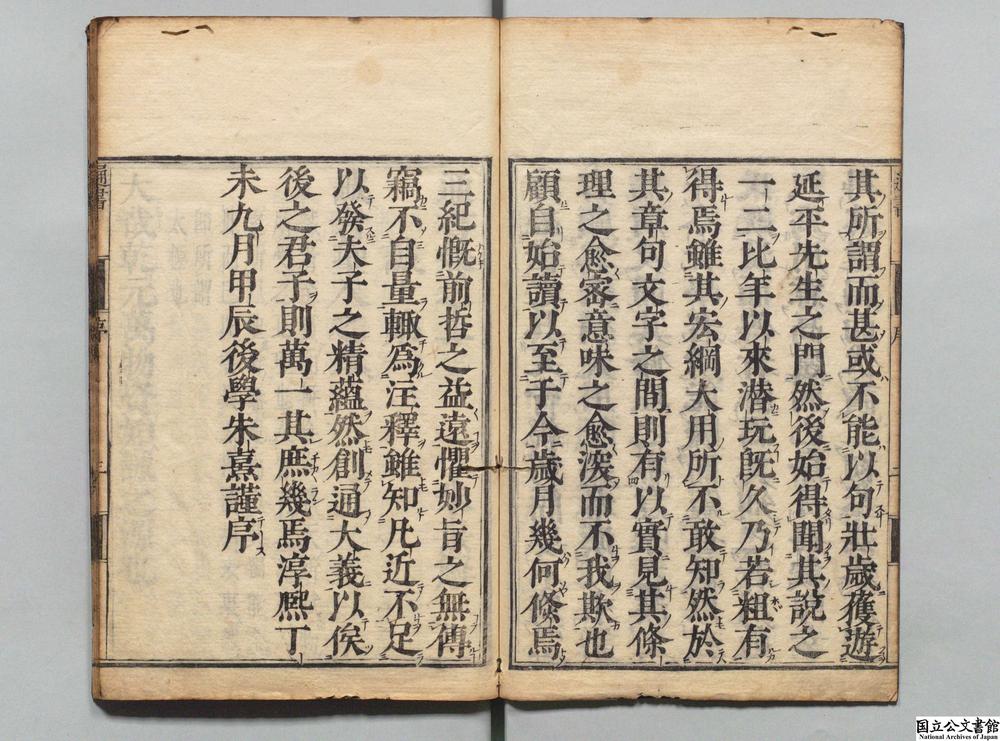 其所謂而甚或不能以句壯歳獲遊
延平先生之門然後始得聞其說之
一二比年以來潜玩既久乃若粗有
得焉雖其宏綱大用所不敢知然於
其章句文字之間則有以實見其條
理之愈密意味之愈深而不我欺也
顧自始讀以至于今歳月幾何倏焉
三紀慨前哲之益遠懼妙旨之無傳
竊不自量輙爲注釋雖知凡近不足
以發夫子之精蘊然創通大義以俟
後之君子則萬一其庶幾焉淳熈丁
未九月甲辰後學朱熹謹序
通書
序
三
国立公文書館
National Archives of Japan